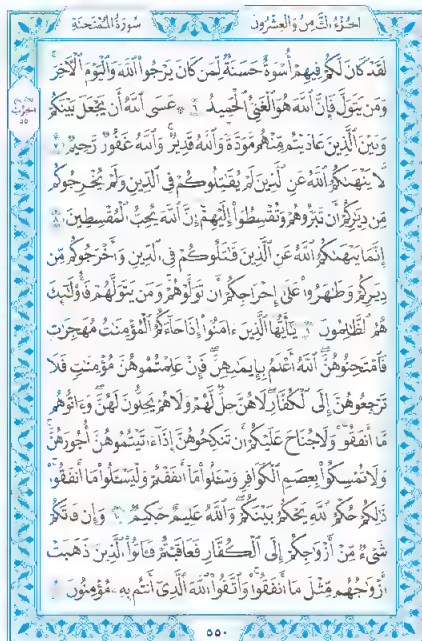 الجزء الثامن والعشرون سورة الممتحنة
لَقَدْ كَانَ لَكُمْ فِيهِمْ أُسْوَةٌ حَسَنَةٌ لِّمَن كَانَ يَرْجُوا۟ ٱللَّهَ وَٱلْيَوْمَ ٱلْـَٔاخِرَ
وَمَن يَتَوَلَّ فَإِنَّ ٱللَّهَ هُوَ ٱلْغَنِىُّ ٱلْحَمِيدُ ٦ ۞ عَسَى ٱللَّهُ أَن يَجْعَلَ بَيْنَكُمْ
وَبَيْنَ ٱلَّذِينَ عَادَيْتُم مِّنْهُم مَّوَدَّةً وَٱللَّهُ قَدِيرٌ وَٱللَّهُ غَفُورٌ رَّحِيمٌ ٧
لَّا يَنْهَىٰكُمُ ٱللَّهُ عَنِ ٱلَّذِينَ لَمْ يُقَٰتِلُوكُمْ فِى ٱلدِّينِ وَلَمْ يُخْرِجُوكُم
مِّن دِيَٰرِكُمْ أَن تَبَرُّوهُمْ وَتُقْسِطُوٓا۟ إِلَيْهِمْ إِنَّ ٱللَّهَ يُحِبُّ ٱلْمُقْسِطِينَ ٨
إِنَّمَا يَنْهَىٰكُمُ ٱللَّهُ عَنِ ٱلَّذِينَ قَٰتَلُوكُمْ فِى ٱلدِّينِ وَأَخْرَجُوكُم مِّن
دِيَٰرِكُمْ وَظَٰهَرُوا۟ عَلَىٰٓ إِخْرَاجِكُمْ أَن تَوَلَّوْهُمْ وَمَن يَتَوَلَّهُمْ فَأُو۟لَٰٓئِكَ
هُمُ ٱلظَّٰلِمُونَ ٩ يَٰٓأَيُّهَا ٱلَّذِينَ ءَامَنُوٓا۟ إِذَا جَآءَكُمُ ٱلْمُؤْمِنَٰتُ مُهَٰجِرَٰتٍ
فَٱمْتَحِنُوهُنَّ ٱللَّهُ أَعْلَمُ بِإِيمَٰنِهِنَّ فَإِنْ عَلِمْتُمُوهُنَّ مُؤْمِنَٰتٍ فَلَا
تَرْجِعُوهُنَّ إِلَى ٱلْكُفَّارِ لَا هُنَّ حِلٌّ لَّهُمْ وَلَا هُمْ يَحِلُّونَ لَهُنَّ وَءَاتُوهُم
مَّآ أَنفَقُوا۟ وَلَا جُنَاحَ عَلَيْكُمْ أَن تَنكِحُوهُنَّ إِذَآ ءَاتَيْتُمُوهُنَّ أُجُورَهُنَّ
وَلَا تُمْسِكُوا۟ بِعِصَمِ ٱلْكَوَافِرِ وَسْـَٔلُوا۟ مَآ أَنفَقْتُمْ وَلْيَسْـَٔلُوا۟ مَآ أَنفَقُوا۟
ذَٰلِكُمْ حُكْمُ ٱللَّهِ يَحْكُمُ بَيْنَكُمْ وَٱللَّهُ عَلِيمٌ حَكِيمٌ ١٠ وَإِن فَاتَكُمْ
شَىْءٌ مِّنْ أَزْوَٰجِكُمْ إِلَى ٱلْكُفَّارِ فَعَاقَبْتُمْ فَـَٔاتُوا۟ ٱلَّذِينَ ذَهَبَتْ
أَزْوَٰجُهُم مِّثْلَ مَآ أَنفَقُوا۟ وَٱتَّقُوا۟ ٱللَّهَ ٱلَّذِىٓ أَنتُم بِهِۦ مُؤْمِنُونَ ١١
٥٥٠